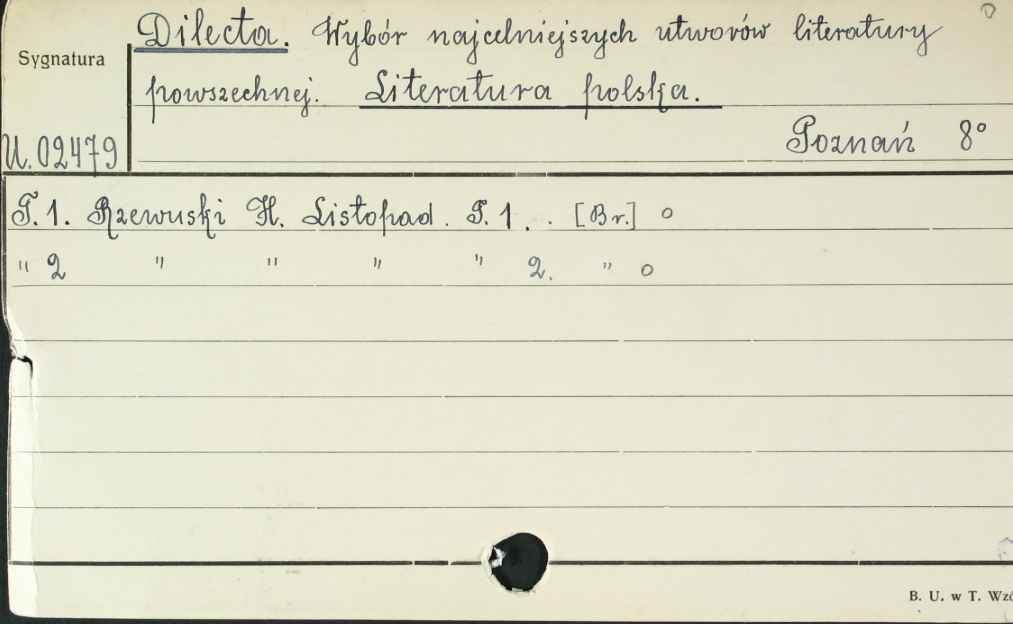 Dilecta. Wybór najcelniejszych utworów literatury
Sygnatura
powszechnej. Literatura polska.
U.02479
Poznań 8°
T.1. Rzewuski H. Listopad. T.1. . [Br.] o
" 2 " " " " 2. " o
B. U. w T.